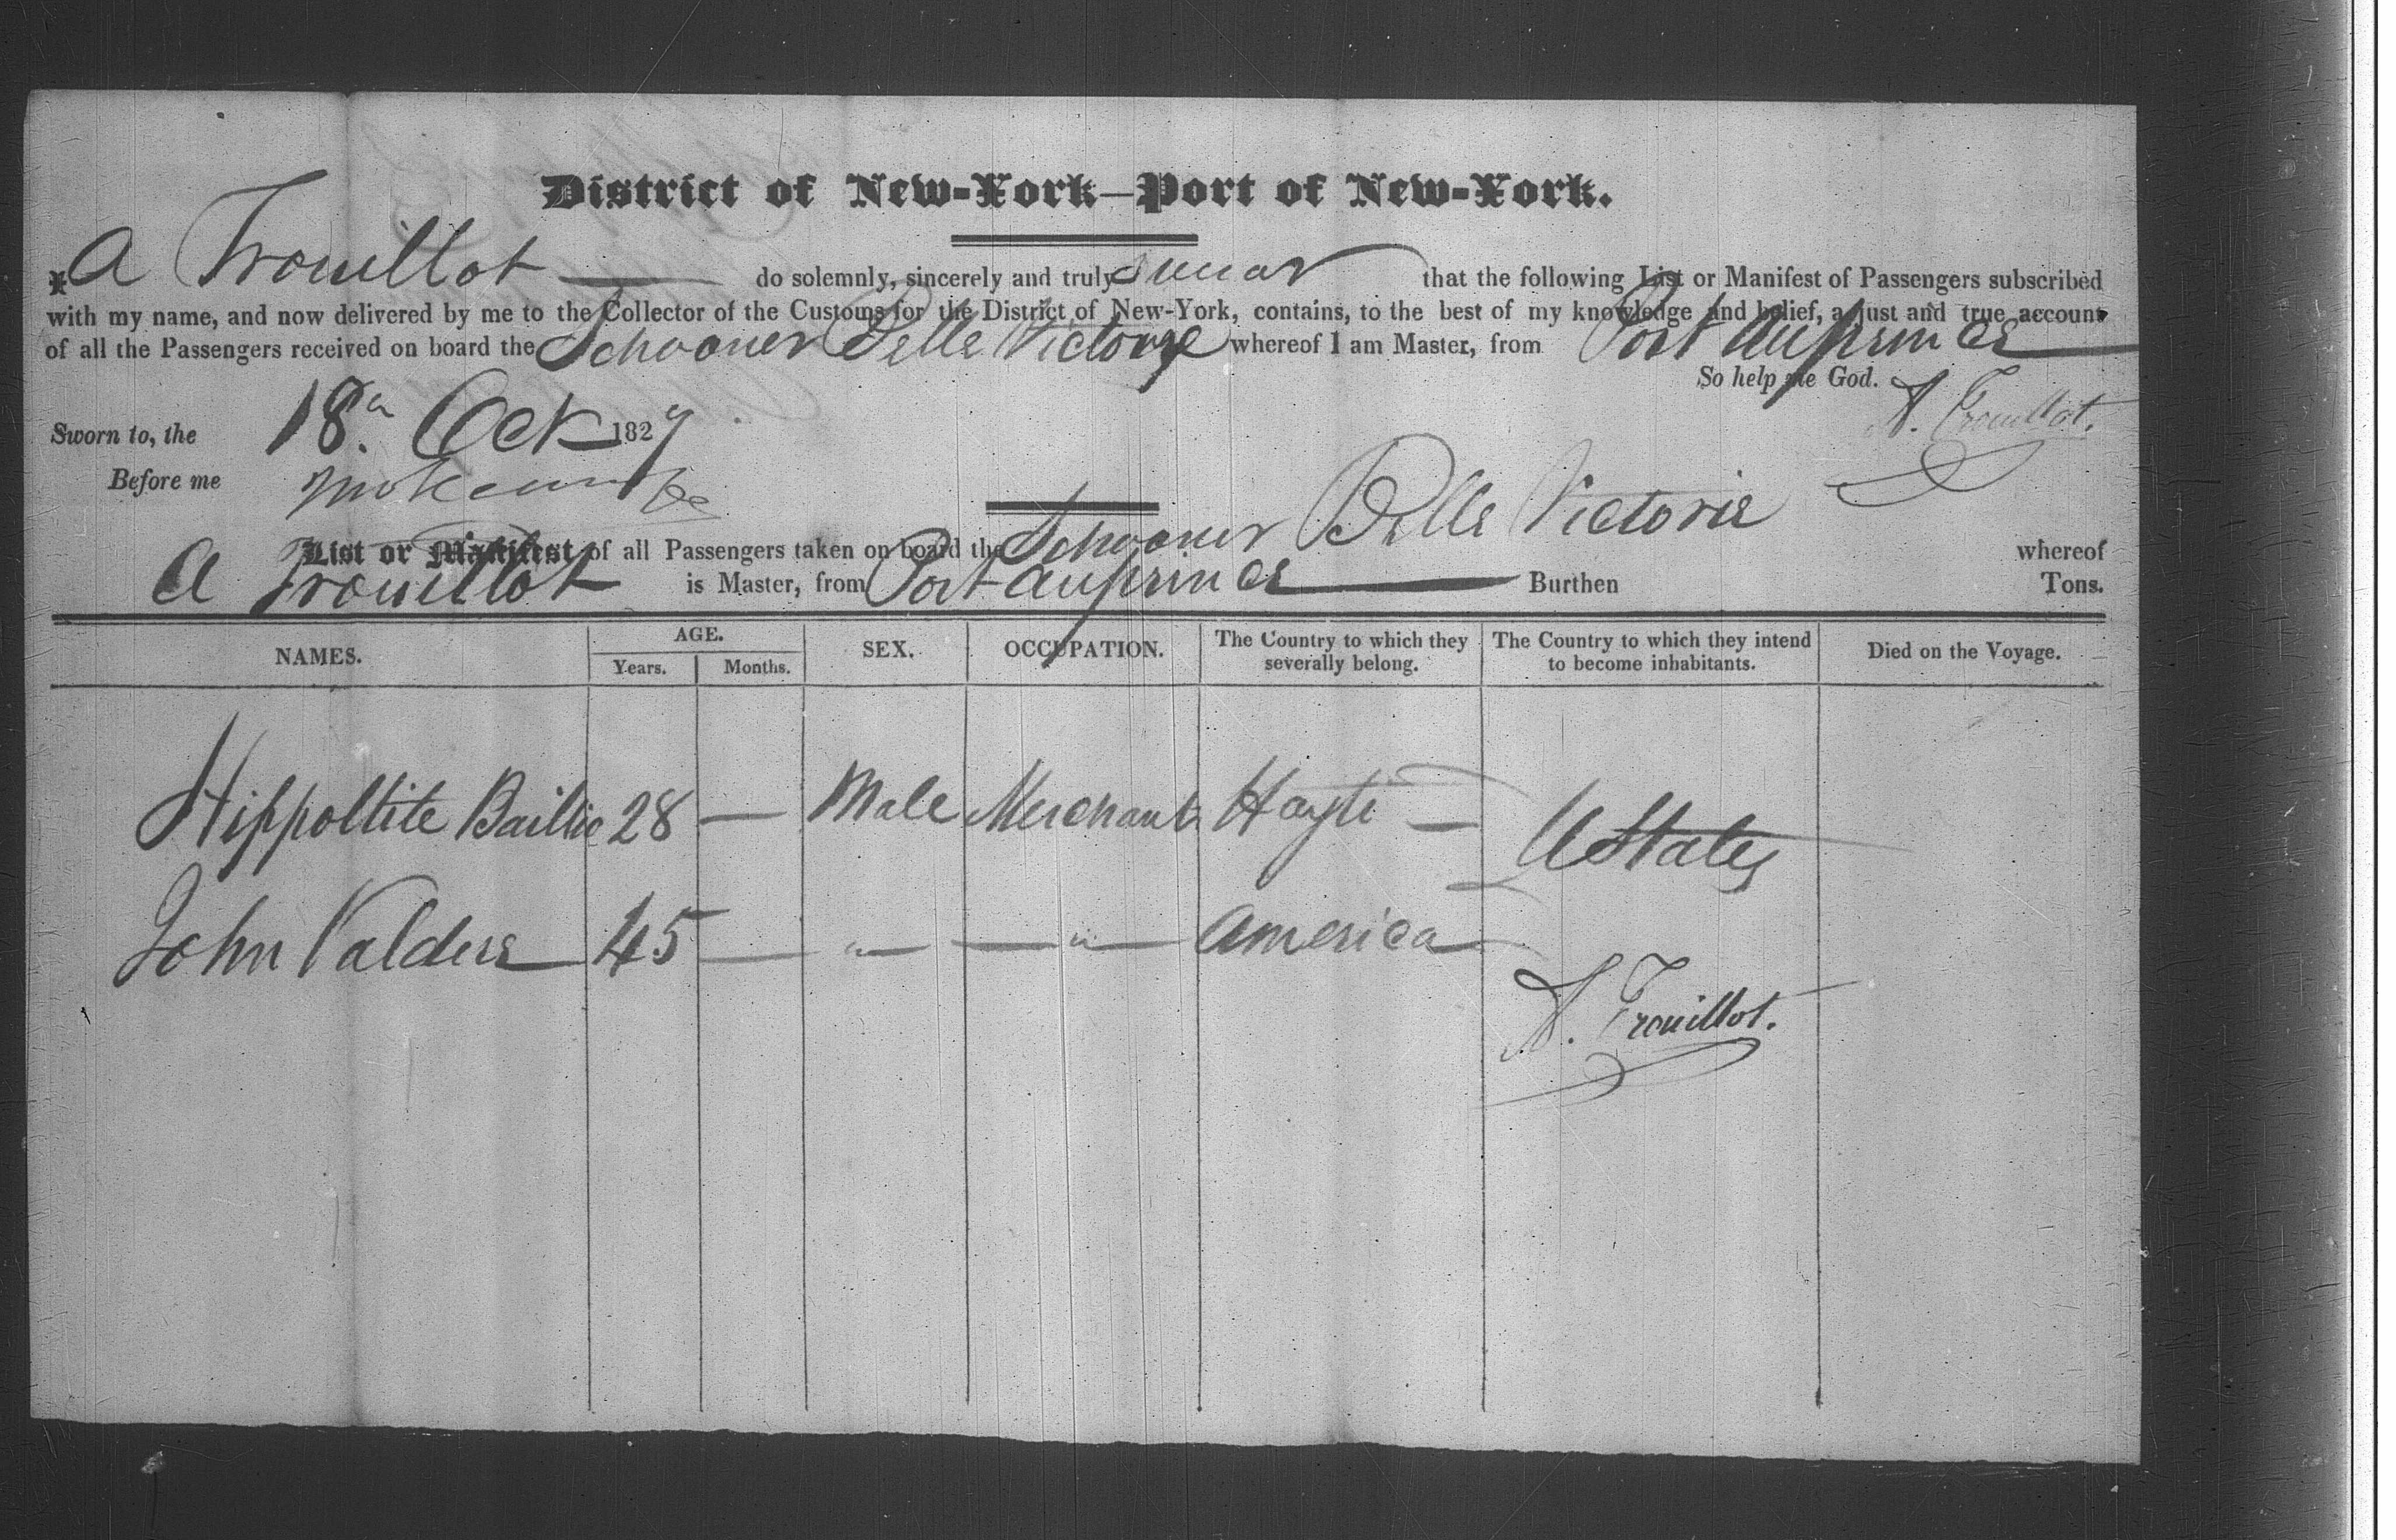 District of New-York—Port of New-York.
I A Trouillot do solemnly, sincerely and truly swear that the following List or Manifest of Passengers subscribed
with my name, and now delivered by me to the Collector of the Customs for the District of New-York, contains, to the best of my knowledge and belief, a just and true account
of all the Passengers received on board the Schooner Belle Victorye whereof I am Master, from Port auprince
So help me God.
Sworn to, the 18th Oct 1827 A. Trouillot.
Before me
List or Manifest of all Passengers taken on board the Schooner Belle Victorie whereof
A Trouillot is Master, from Port auprince Burthen Tons.
NAMES. AGE. Years. Months. SEX. OCCUPATION. The Country to which they severally belong. The Country to which they intend to become inhabitants. Died on the Voyage.
Hippoltite Baillie 28 — Male Merchant Hayti — U States
John Valders 45 — " — " — America
A. Trouillot.